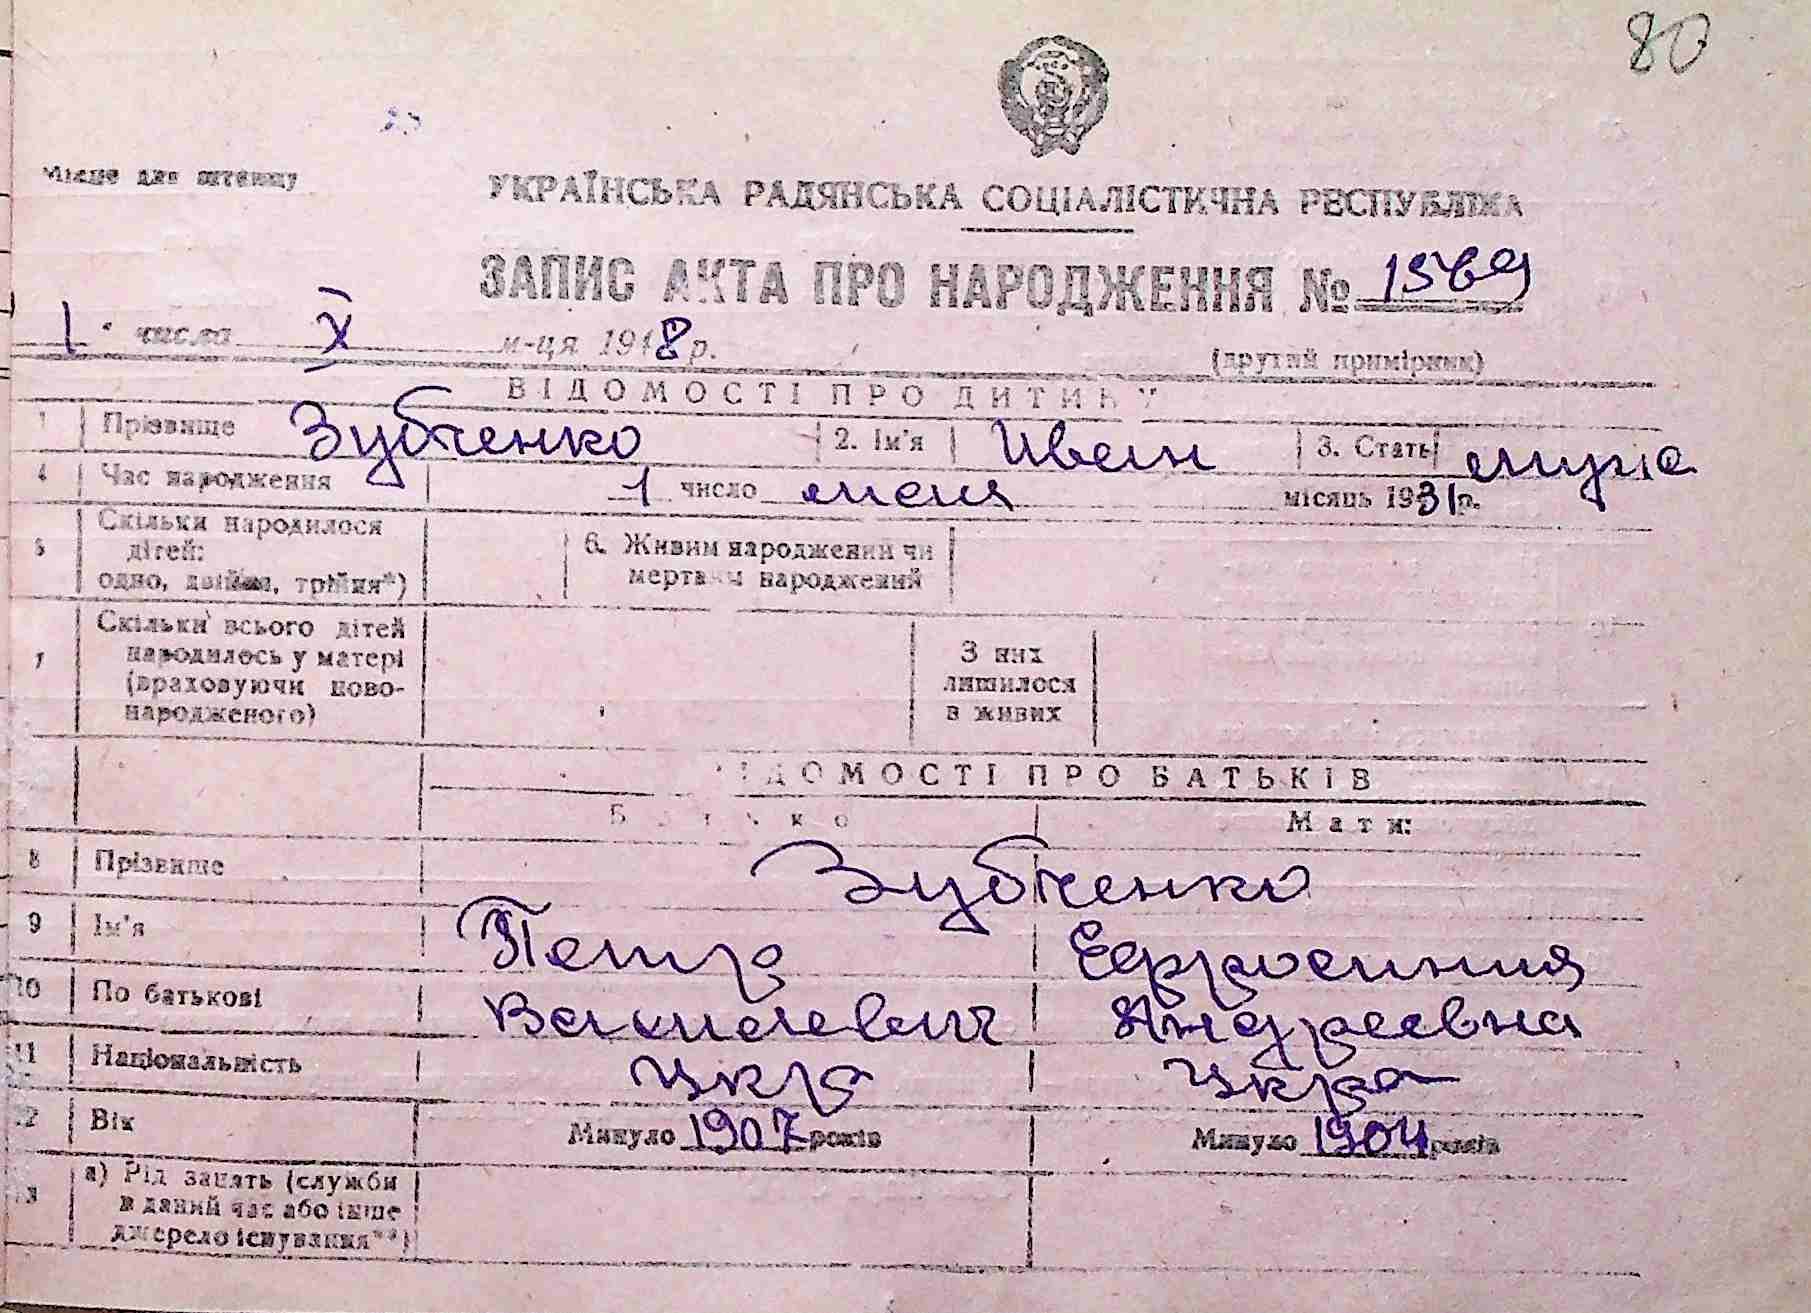 80
Місце для штемпу
УКРАЇНСЬКА РАДЯНСЬКА СОЦІАЛІСТИЧНА РЕСПУБЛІКА
ЗАПИС АКТА ПРО НАРОДЖЕННЯ № 1569
1 числа X м-ця 1948 р. (другий примірник)
ВІДОМОСТІ ПРО ДИТИНУ
1 Прізвище Зубченко 2. Ім'я Иван 3. Стать муж
4 Час народження 1 число июня місяць 1931 р.
5 Скільки народилося дітей: одно, двійня, трійня*) 6. Живим народжений чи мертвим народжений
7 Скільки всього дітей народилось у матері (враховуючи новонародженого) З них лишилося в живих
ВІДОМОСТІ ПРО БАТЬКІВ
Батько Мати:
8 Прізвище Зубченко
9 Ім'я Петр Ефросиния
10 По батькові Василевич Андреевна
11 Національність укр укр
12 Вік Минуло 1907 років Минуло 1904 років
13 а) Рід занять (служби в даний час або інше джерело існування**)